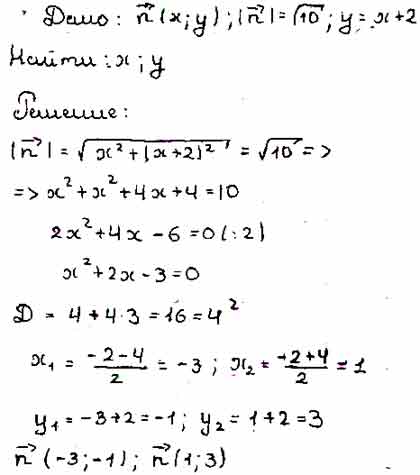 Дано: n⃗(x;y); |n⃗|=√10; y=x+2
Найти: x; y
Решение:
|n⃗| = √(x²+(x+2)²) = √10 =>
=> x²+x²+4x+4=10
2x²+4x-6=0 (:2)
x²+2x-3=0
D = 4+4·3=16=4²
x₁ = (-2-4)/2 = -3; x₂ = (-2+4)/2 = 1
y₁ = -3+2=-1; y₂ = 1+2=3
n⃗(-3;-1); n⃗(1;3)